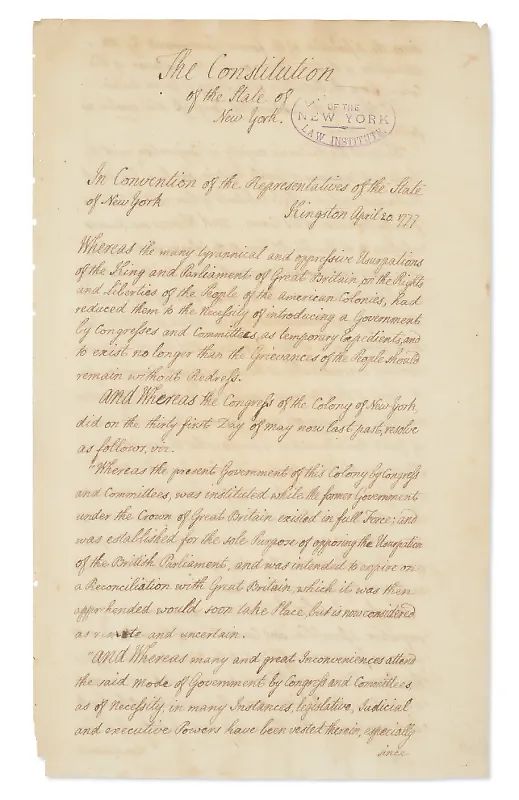 The Constitution
of the State of
New York.
OF THE
NEW YORK
LAW INSTITUTE.
In Convention of the Representatives of the State
of New York
Kingston April 20. 1777
Whereas the many tyrannical and oppressive Usurpations
of the King and Parliament of Great Britain, on the Rights
and Liberties of the People of the American Colonies, had
reduced them to the Necessity of introducing a Government
by Congresses and Committees, as temporary Expedients, and
to exist no longer than the Grievances of the People should
remain without Redress.
And Whereas the Congress of the Colony of New York,
did on the thirty first Day of May now last past, resolve
as follows, viz.
"Whereas the present Government of this Colony by Congress
and Committees, was instituted while the former Government
under the Crown of Great Britain existed in full Force; and
was established for the sole Purpose of opposing the Usurpation
of the British Parliament, and was intended to expire on
a Reconciliation with Great Britain, which it was then
apprehended would soon take Place, but is now considered
as remote and uncertain.
"And Whereas many and great Inconveniences attend
the said Mode of Government by Congress and Committees,
as of Necessity, in many Instances, legislative, Judicial
and executive Powers have been vested therein, especially
since